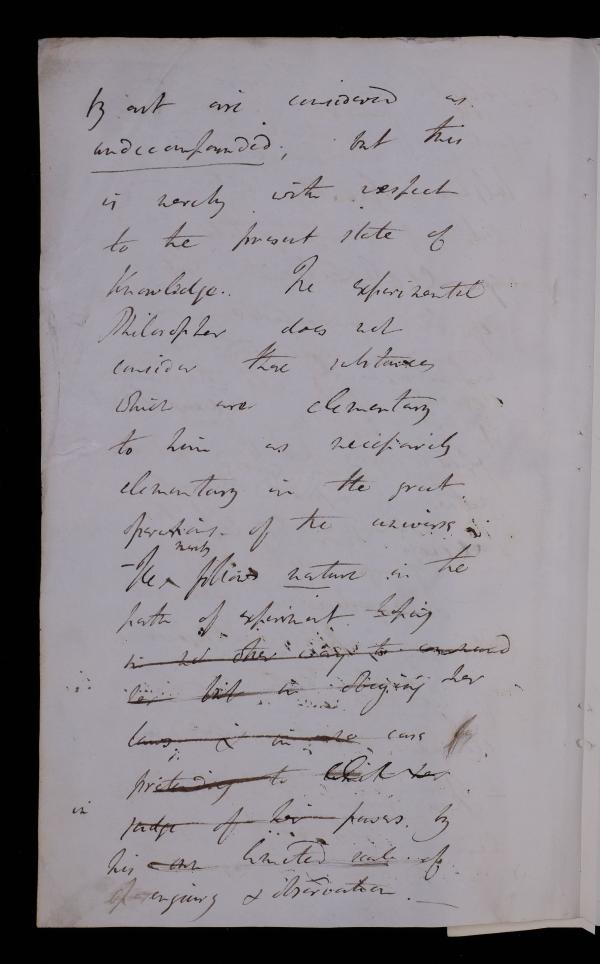 by art are considered as
undecompounded; but this
is merely with respect
to the present state of
Knowledge. The experimental
Philosopher does not
consider those substances
which are elementary
to him as necessarily
elementary in the great
operations of the universe
merely
He follows nature in the
path of experiment hoping
in no other way to command
her but in obeying her
laws & in no case
pretending to limit her
in
judge of her powers by
his own limited scale of
of enquiry & observation. —